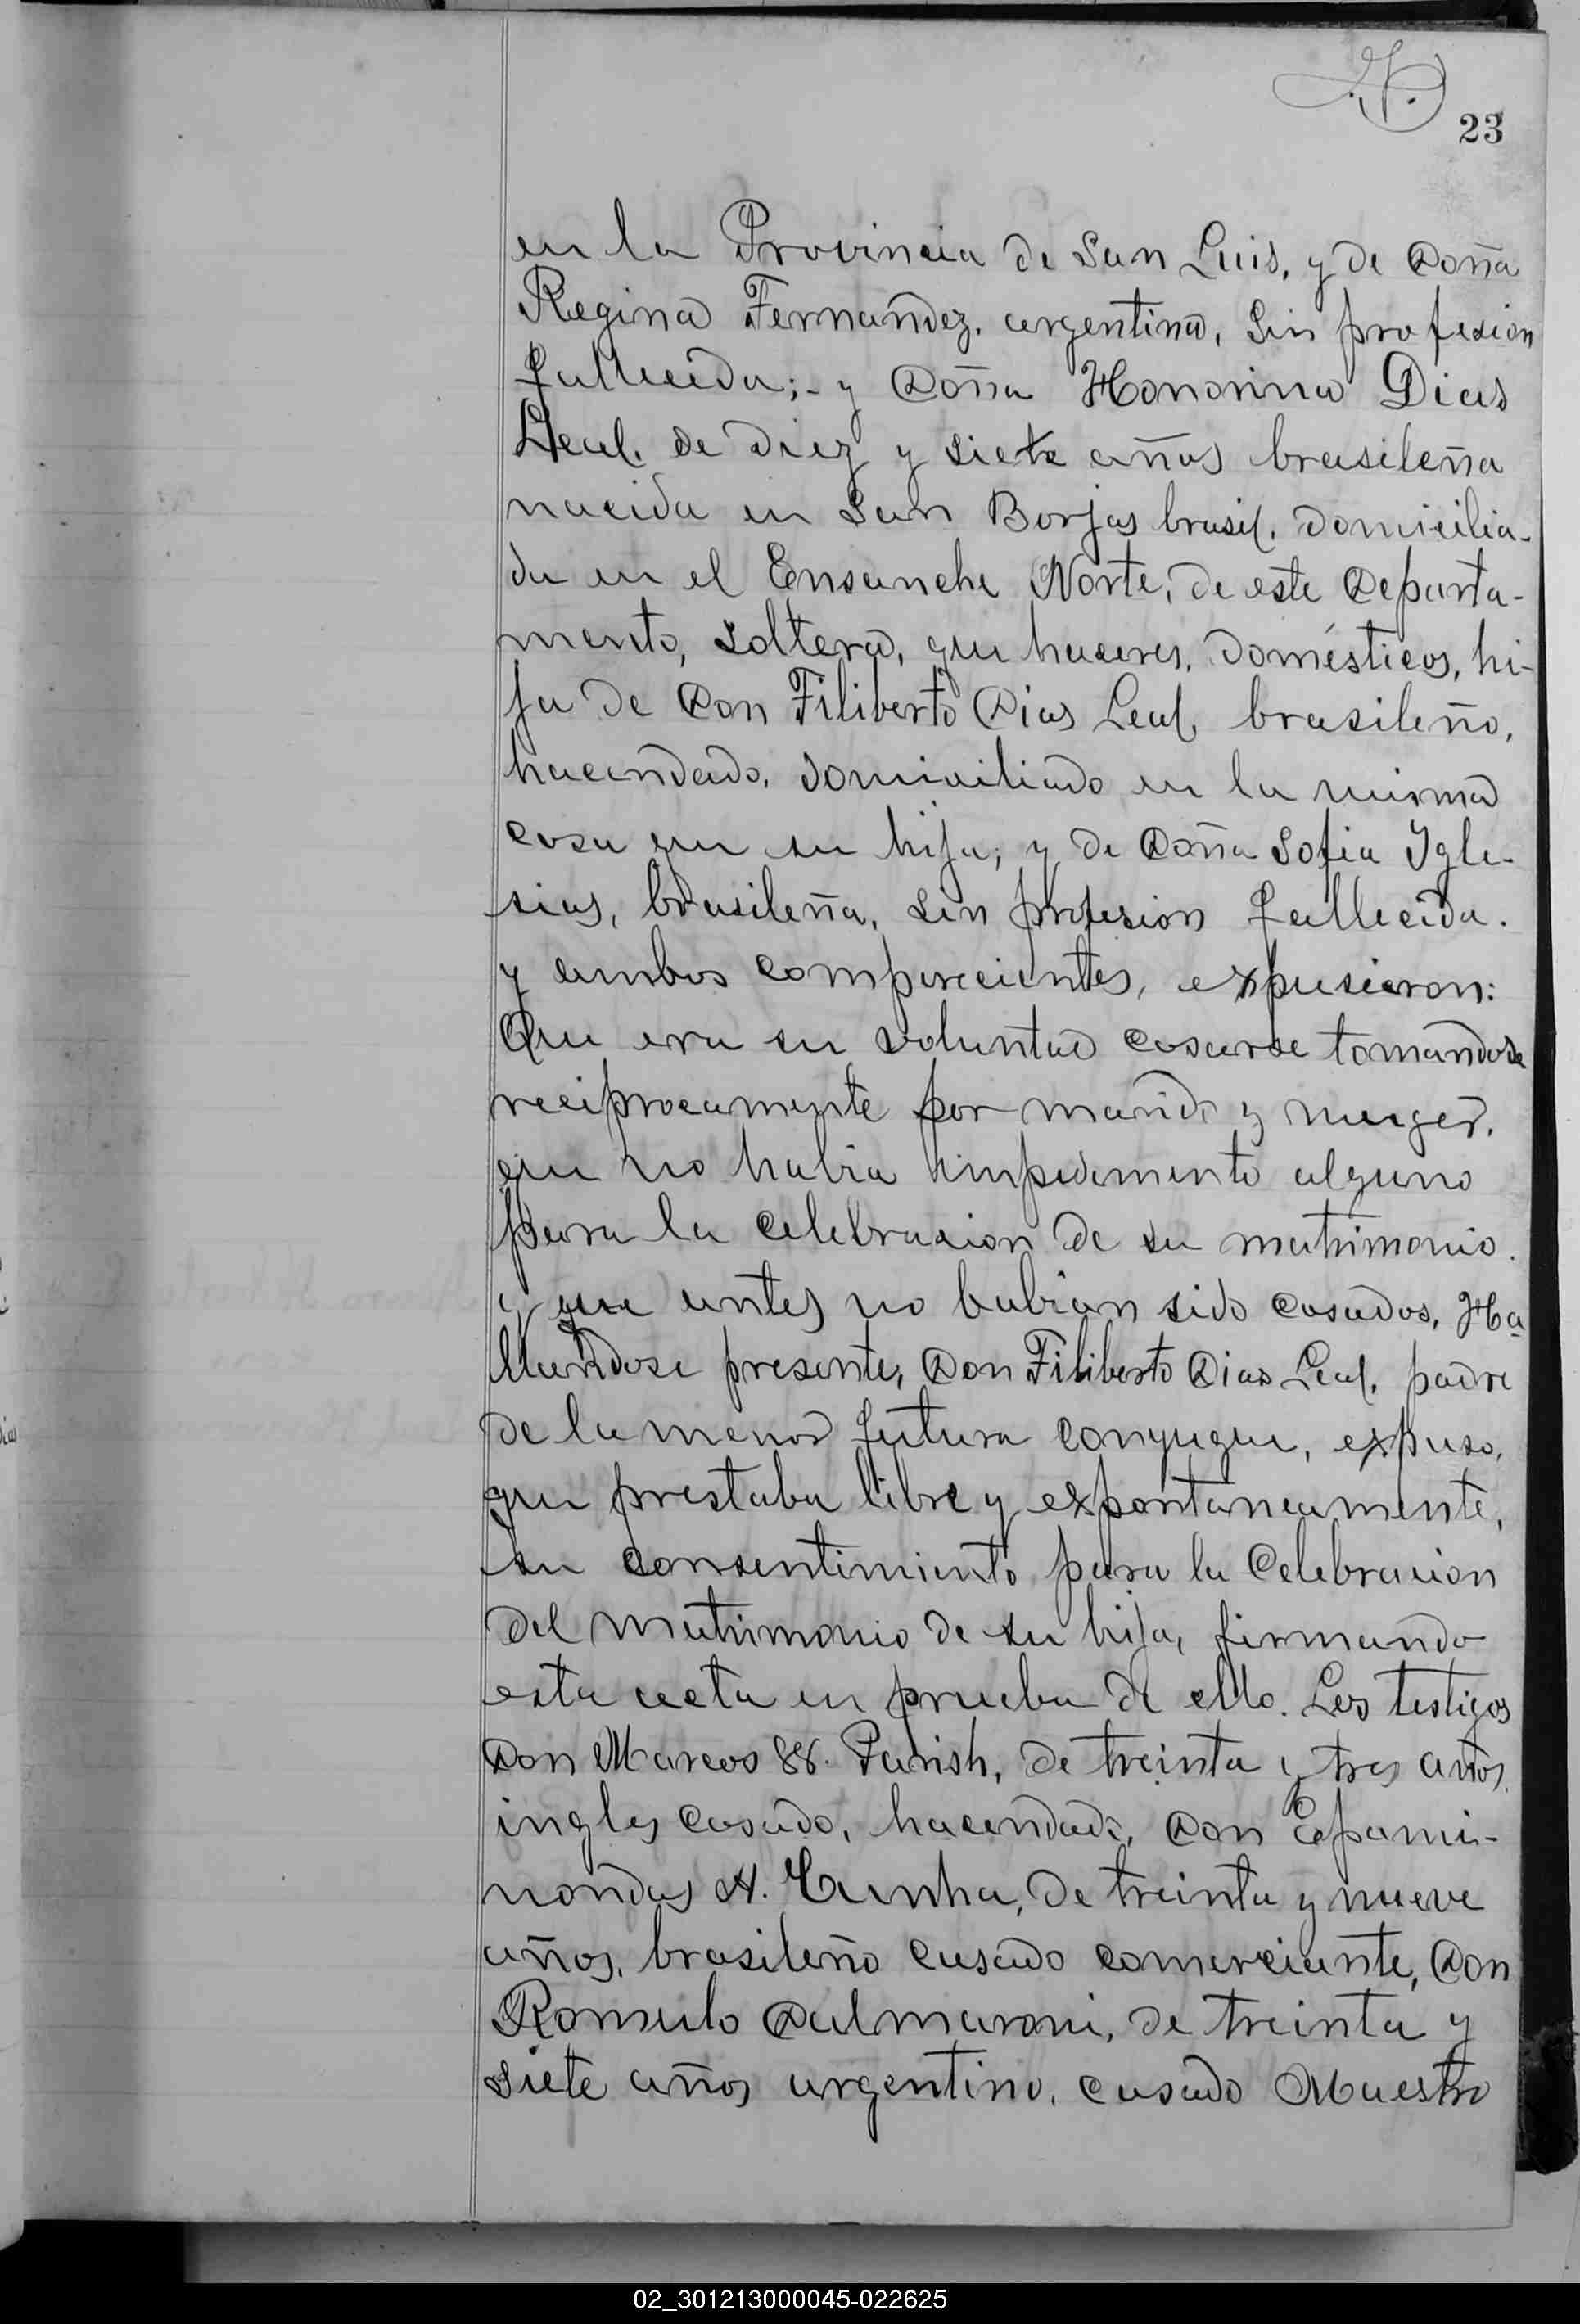 23
en la Provincia de San Luis, y de Doña
Regina Fernandez, argentina, sin profesion
fallecida;- y Doña Honorina Dias
Leal, de diez y siete años brasileña
nacida en San Borjas brasil, domicilia-
da en el Ensanche Norte, de este Departa-
mento, soltera, que haceres, domésticos, hi-
ja de Don Filiberto Dias Leal, brasileño,
hacendado, domiciliado en la misma
casa que su hija; y de Doña Sofia Igle-
sias, brasileña, sin profesion fallecida.
y ambos comparecientes, expusieron:
Que era su voluntad casarse tomandose
reciprocamente por marido y muger,
que no habia impedimento alguno
para la celebracion de su matrimonio.
y que antes no habian sido casados, Ha
llandose presente, Don Filiberto Dias Leal, padre
de la menor futura conyugue, expuso,
que prestaba libre y expontaneamente,
su consentimiento para la Celebracion
del matrimonio de su hija, firmando
esta acta en prueba de ello. Los testigos
Don Marcos Parish, de treinta y tres años,
ingles casado, hacendado, Don Epami-
nondas A. Cunha, de treinta y nueve
años, brasileño casado comerciante, Don
Romulo Dalmaroni, de treinta y
siete años argentino, casado Maestro
02_301213000045-022625